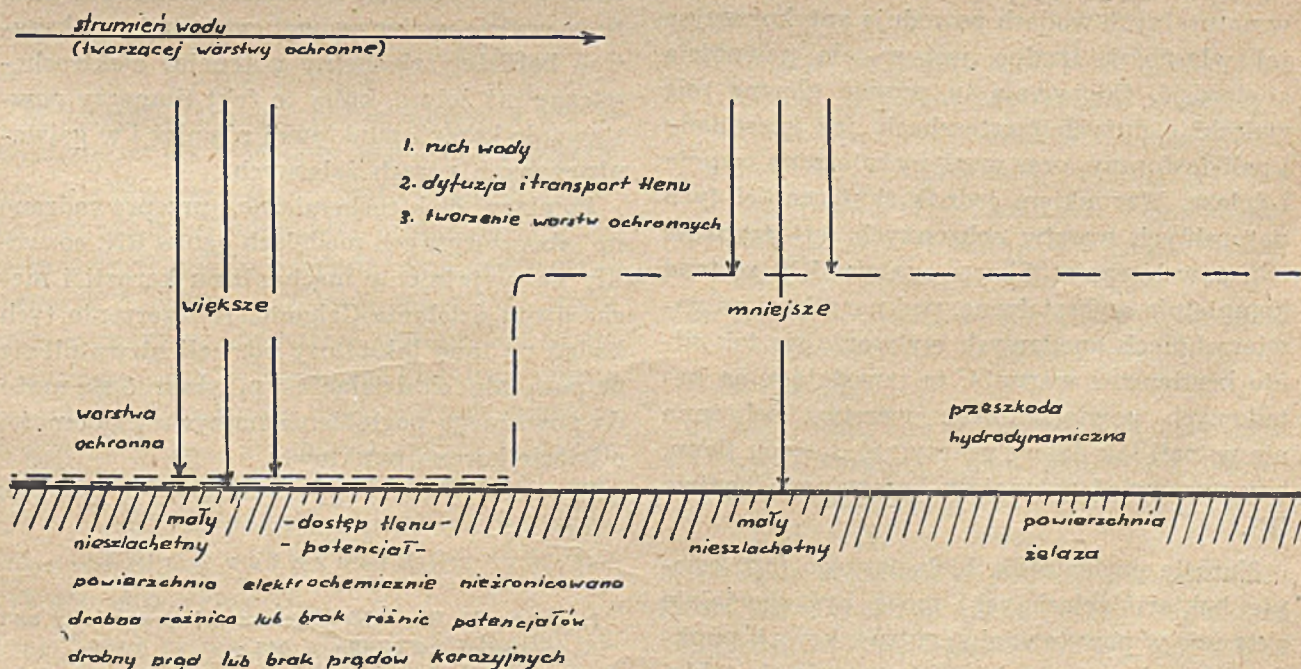 strumień wody
(tworzącej warstwy ochronne)
1. ruch wody
2. dyfuzja i transport tlenu
3. tworzenie warstw ochronnych
większe
mniejsze
warstwa
ochronna
przeszkoda
hydrodynamiczna
mały -dostęp tlenu- mały powierzchnia
nieszlachetny -potencjał- nieszlachetny żelaza
powierzchnia elektrochemicznie nieżronicowana
drobna różnica lub brak różnic potencjałów
drobny prąd lub brak prądów korozyjnych